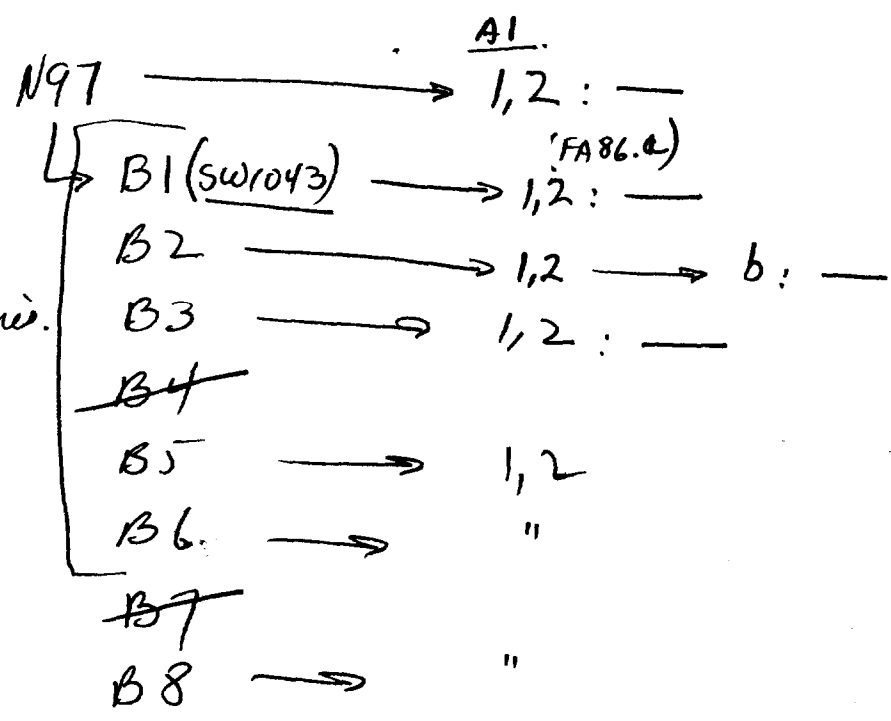 A1.
N97 → 1,2 : —
(FA86.a)
↳ B1 (SW1043) → 1,2 : —
B2 → 1,2 → b : —
B3 → 1,2 : —
B4
B5 → 1,2
B6. → "
B7
B8 → "